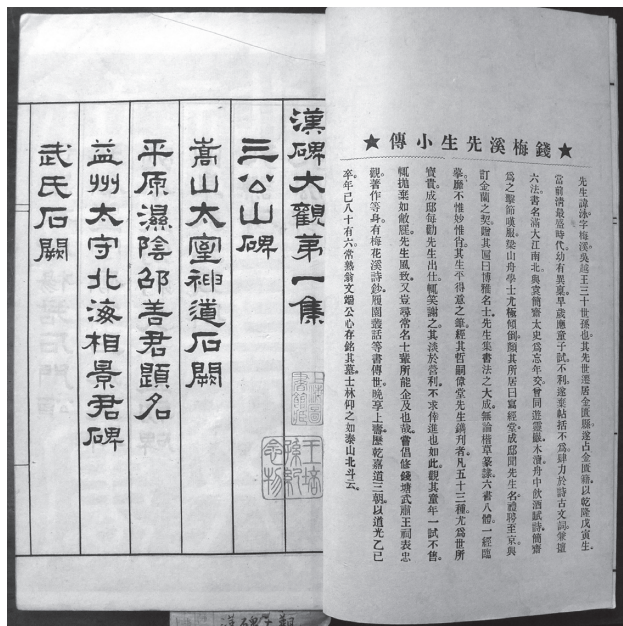 ★錢梅溪先生小傳★
先生諱泳字梅溪吳越王三十世孫也其先世遷居金匱縣遂占金匱籍以乾隆戊寅生
當前清最盛時代幼有異稟早歲應童子試不利遂棄帖括不爲肆力於詩古文詞兼擅
六法書名滿大江南北與袁簡齋太史爲忘年交曾同遊靈巖木瀆舟中飲酒賦詩簡齋
爲之擊節嘆服梁山舟學士尤極傾倒顏其所居曰寫經堂成邸聞先生名禮聘至京與
訂金蘭之契贈其匾曰博雅名士先生集書法之大成無論楷草篆隷六書八體一經臨
摹靡不惟妙惟肖其生平得意之筆經其哲嗣偉堂先生鐫刋者凡五十三種尤爲世所
寶貴成邸每勸先生出仕輒笑謝之其淡於營利不求倖進也如此觀其童年一試不售
輒拋棄如敝屣先生風致又豈尋常名士輩所能企及也哉嘗倡修錢塘武肅王祠表忠
觀著作等身有梅花溪詩鈔履園叢話等書傳世晚享上壽歷乾嘉道三朝以道光乙巳
卒年已八十有六常熟翁文端公心存銘其墓士林仰之如泰山北斗云
漢碑大觀第一集
三公山碑
嵩山太室神道石闕
平原濕陰邵善君題名
益州太守北海相景君碑
武氏石闕
王培孫紀念物